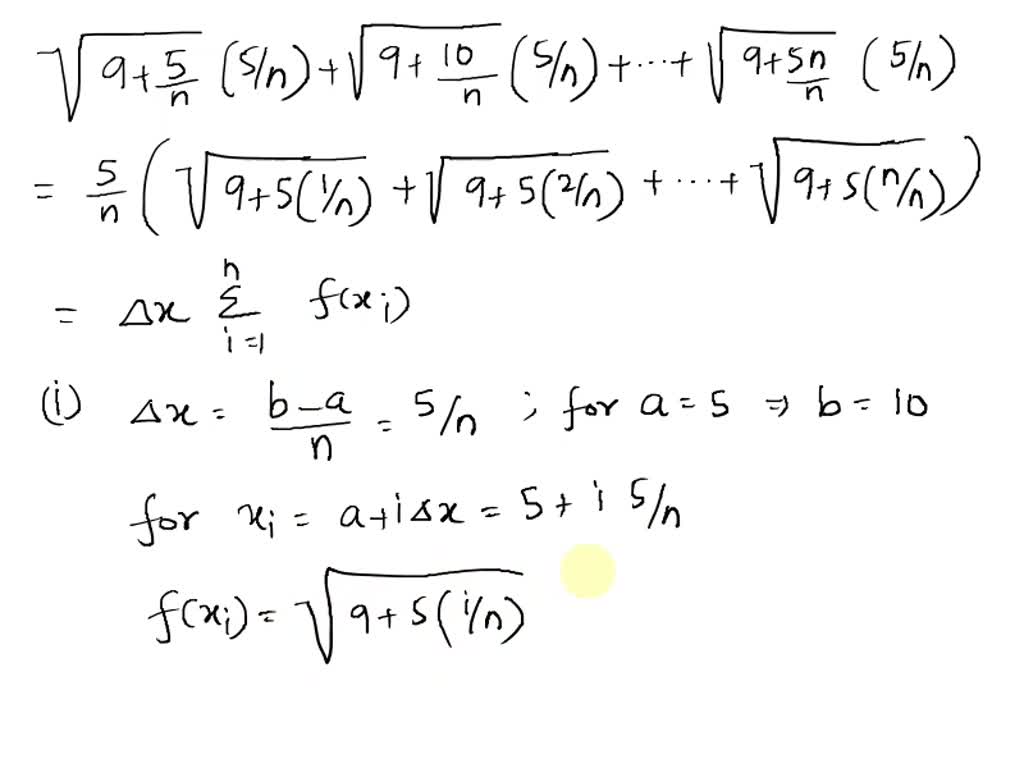 √(9+5/n) (5/n) + √(9+10/n) (5/n) + ... + √(9+5n/n) (5/n)
= 5/n (√(9+5(1/n)) + √(9+5(2/n)) + ... + √(9+5(n/n)))
= Δx Σ_{i=1}^{n} f(x_i)
(i) Δx = (b-a)/n = 5/n ; for a = 5 ⇒ b = 10
for x_i = a+iΔx = 5 + i 5/n
f(x_i) = √(9+5(i/n))